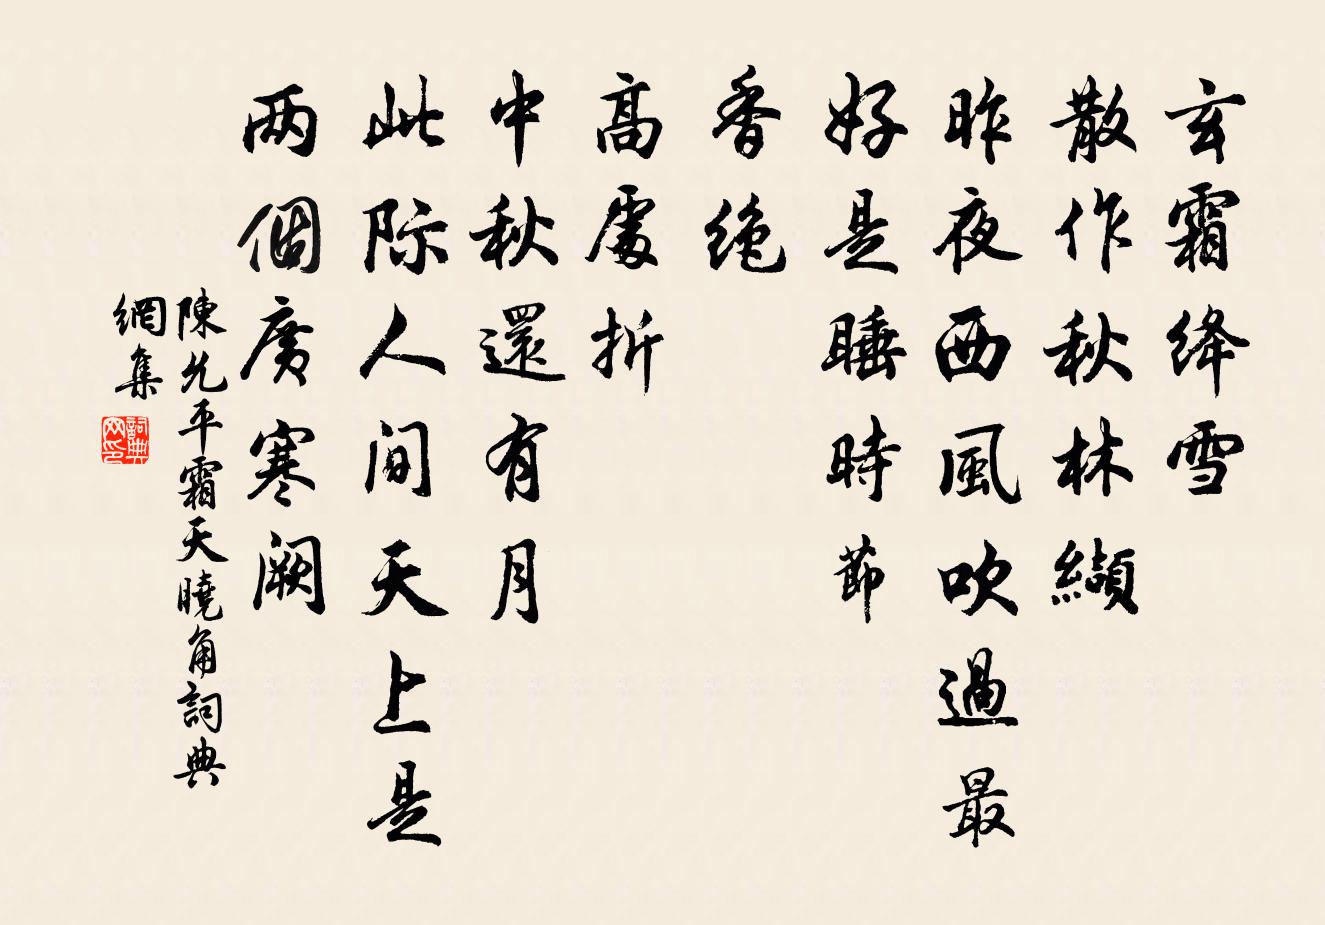 玄霜绛雪
散作秋林纈
昨夜西風吹過最
好是睡時節
香绝
高處折
中秋還有月
此际人间天上是
两個廣寒阙
陳允平霜天曉角詞典
網集
詞典网印